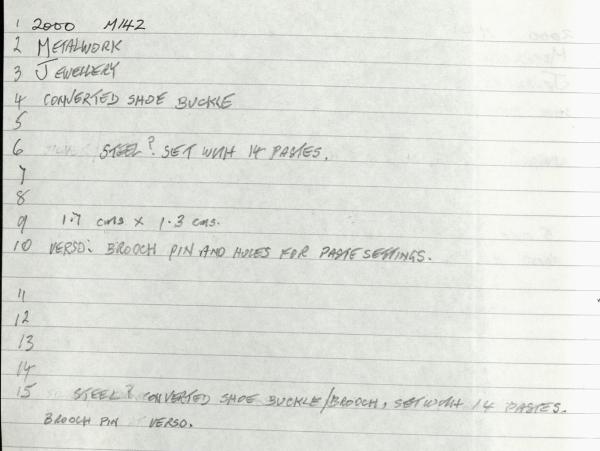 1 2000 M142
2 METALWORK
3 JEWELLERY
4 CONVERTED SHOE BUCKLE
5
6 STEEL? SET WITH 14 PASTES.
7
8
9 1.7 cms x 1.3 cms.
10 VERSO: BROOCH PIN AND HOLES FOR PASTE SETTINGS.
11
12
13
14
15 STEEL? CONVERTED SHOE BUCKLE/BROOCH, SET WITH 14 PASTES.
BROOCH PIN VERSO.